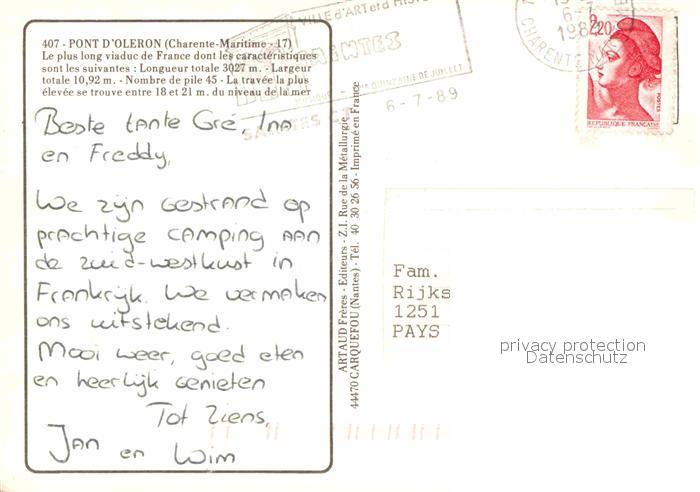 407 - PONT D'OLERON (Charente-Maritime - 17)
Le plus long viaduc de France dont les caractéristiques
sont les suivantes : Longueur totale 3027 m. - Largeur
totale 10,92 m. - Nombre de pile 45 - La travée la plus
élevée se trouve entre 18 et 21 m. du niveau de la mer
Beste tante Gré, Ina
en Freddy,
We zijn gestrand op
prachtige camping aan
de zuid-westkust in
Frankrijk. We vermaken
ons uitstekend.
Mooi weer, goed eten
en heerlijk genieten
Tot Ziens,
Jan en Wim
ARTAUD Frères - Editeurs - Z.I. Rue de la Métallurgie
44470 CARQUEFOU (Nantes) - Tél. 40 30 26 56 - Imprimé en France
VILLE d'ART et d'HIST
SAINTES
QUINZAINE DE JUILLET
6-7-89
CHARENTE
2,20
POSTES
REPUBLIQUE FRANÇAISE
Fam.
Rijks
1251
PAYS
privacy protection
Datenschutz